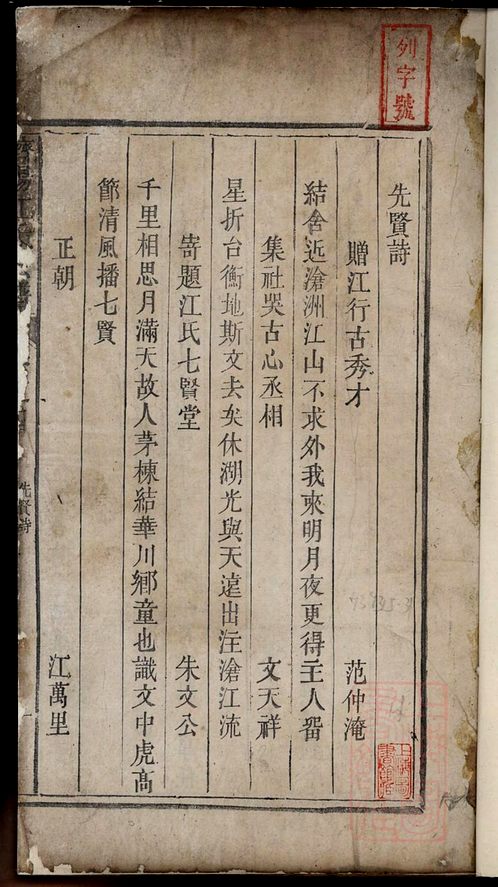 列字號
先賢詩
贈江行古秀才 范仲淹
結舍近滄洲江山不求外我來明月夜更得主人畱
集社哭古心丞相 文天祥
星折台衡地斯文去矣休湖光與天遠出注滄江流
寄題江氏七賢堂 朱文公
千里相思月滿天故人茅棟結華川鄉童也識文中虎高
節清風播七賢
正朝 江萬里
先賢詩